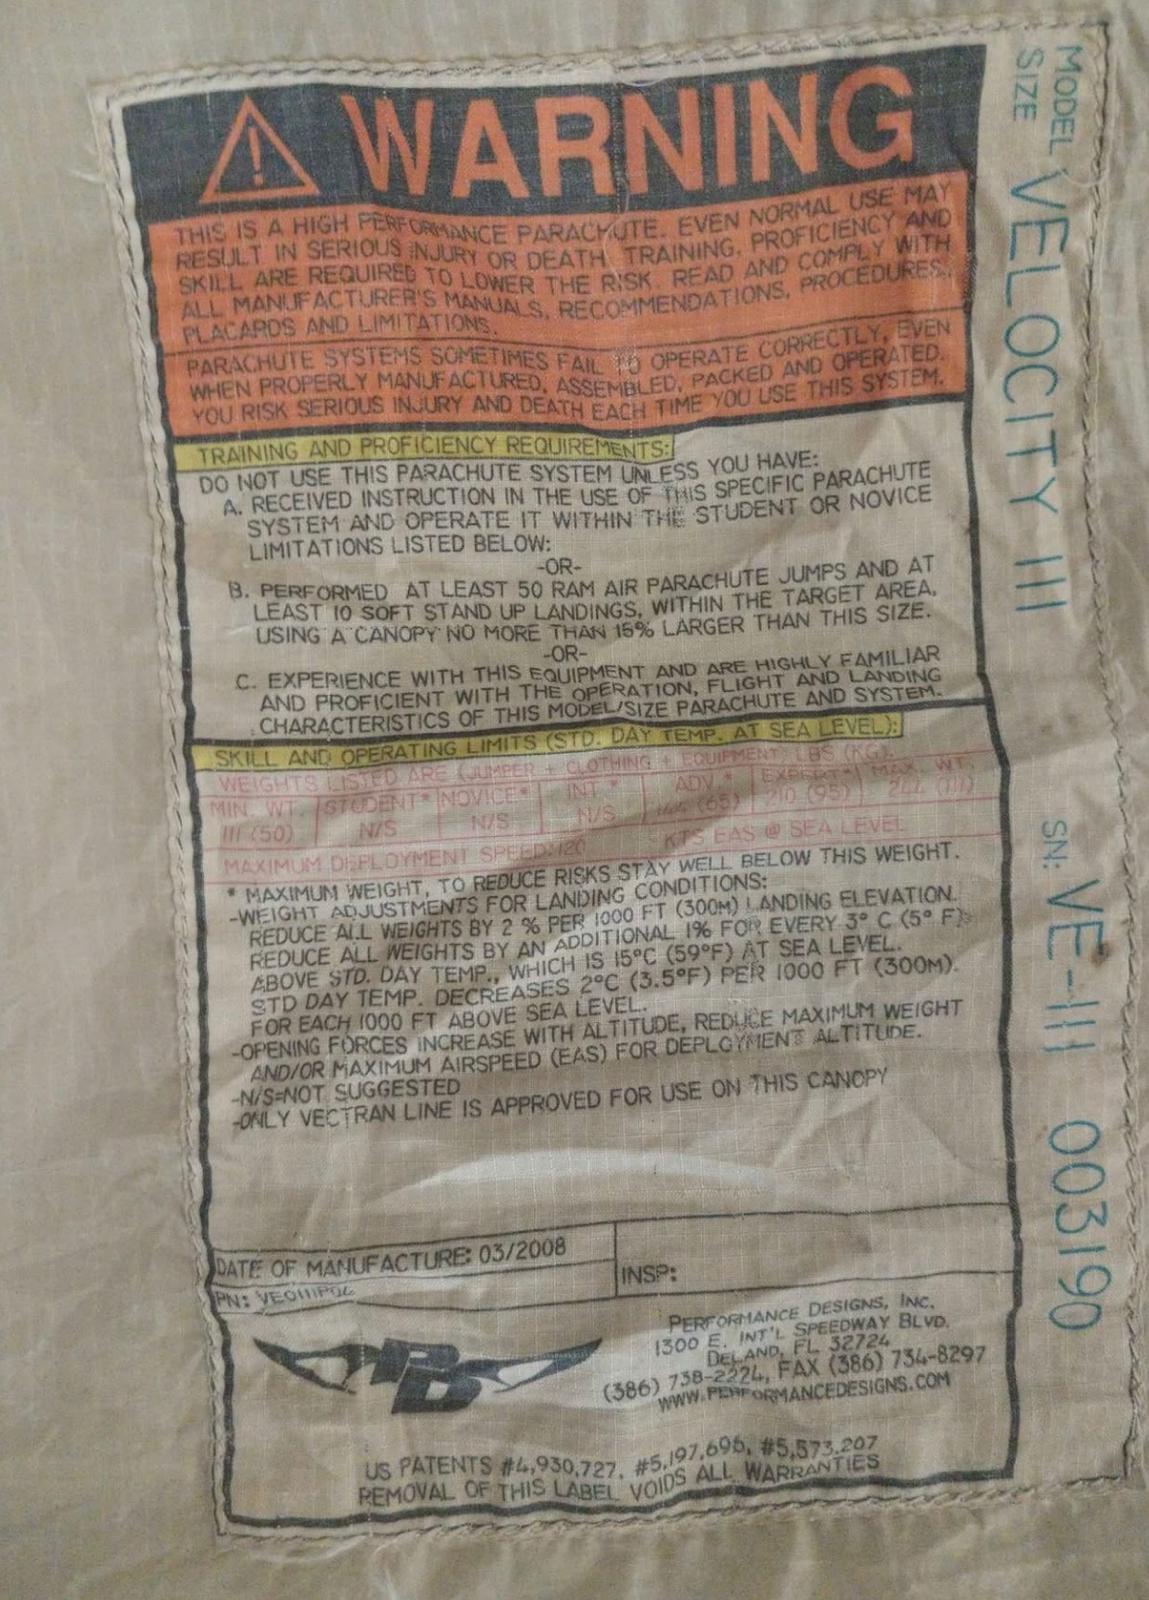 WARNING
THIS IS A HIGH PERFORMANCE PARACHUTE. EVEN NORMAL USE MAY
RESULT IN SERIOUS INJURY OR DEATH. TRAINING, PROFICIENCY AND
SKILL ARE REQUIRED TO LOWER THE RISK. READ AND COMPLY WITH
ALL MANUFACTURER'S MANUALS, RECOMMENDATIONS, PROCEDURES,
PLACARDS AND LIMITATIONS.
PARACHUTE SYSTEMS SOMETIMES FAIL TO OPERATE CORRECTLY, EVEN
WHEN PROPERLY MANUFACTURED, ASSEMBLED, PACKED AND OPERATED.
YOU RISK SERIOUS INJURY AND DEATH EACH TIME YOU USE THIS SYSTEM.
TRAINING AND PROFICIENCY REQUIREMENTS:
DO NOT USE THIS PARACHUTE SYSTEM UNLESS YOU HAVE:
A. RECEIVED INSTRUCTION IN THE USE OF THIS SPECIFIC PARACHUTE
SYSTEM AND OPERATE IT WITHIN THE STUDENT OR NOVICE
LIMITATIONS LISTED BELOW:
-OR-
B. PERFORMED AT LEAST 50 RAM AIR PARACHUTE JUMPS AND AT
LEAST 10 SOFT STAND UP LANDINGS, WITHIN THE TARGET AREA,
USING A CANOPY NO MORE THAN 15% LARGER THAN THIS SIZE.
-OR-
C. EXPERIENCE WITH THIS EQUIPMENT AND ARE HIGHLY FAMILIAR
AND PROFICIENT WITH THE OPERATION, FLIGHT AND LANDING
CHARACTERISTICS OF THIS MODEL/SIZE PARACHUTE AND SYSTEM.
SKILL AND OPERATING LIMITS (STD. DAY TEMP. AT SEA LEVEL):
WEIGHTS LISTED ARE (JUMPER + CLOTHING + EQUIPMENT) LBS (KG).
MIN. WT. STUDENT* NOVICE* INT.* ADV.* EXPERT* MAX. WT.
111 (50) N/S N/S N/S 144 (65) 210 (95) 244 (111)
MAXIMUM DEPLOYMENT SPEED: 120 KTS EAS @ SEA LEVEL
* MAXIMUM WEIGHT, TO REDUCE RISKS STAY WELL BELOW THIS WEIGHT.
-WEIGHT ADJUSTMENTS FOR LANDING CONDITIONS:
REDUCE ALL WEIGHTS BY 2 % PER 1000 FT (300M) LANDING ELEVATION.
REDUCE ALL WEIGHTS BY AN ADDITIONAL 1% FOR EVERY 3° C (5° F)
ABOVE STD. DAY TEMP., WHICH IS 15°C (59°F) AT SEA LEVEL.
STD DAY TEMP. DECREASES 2°C (3.5°F) PER 1000 FT (300M).
FOR EACH 1000 FT ABOVE SEA LEVEL.
-OPENING FORCES INCREASE WITH ALTITUDE, REDUCE MAXIMUM WEIGHT
AND/OR MAXIMUM AIRSPEED (EAS) FOR DEPLOYMENT ALTITUDE.
-N/S=NOT SUGGESTED
-ONLY VECTRAN LINE IS APPROVED FOR USE ON THIS CANOPY
DATE OF MANUFACTURE: 03/2008
INSP:
PN:
PD
PERFORMANCE DESIGNS, INC.
1300 E. INT'L SPEEDWAY BLVD.
DELAND, FL 32724
(386) 738-2224, FAX (386) 734-8297
WWW.PERFORMANCEDESIGNS.COM
US PATENTS #4,930,727, #5,197,696, #5,573,207
REMOVAL OF THIS LABEL VOIDS ALL WARRANTIES
MODEL VELOCITY III
SIZE
SN: VE-111 003190